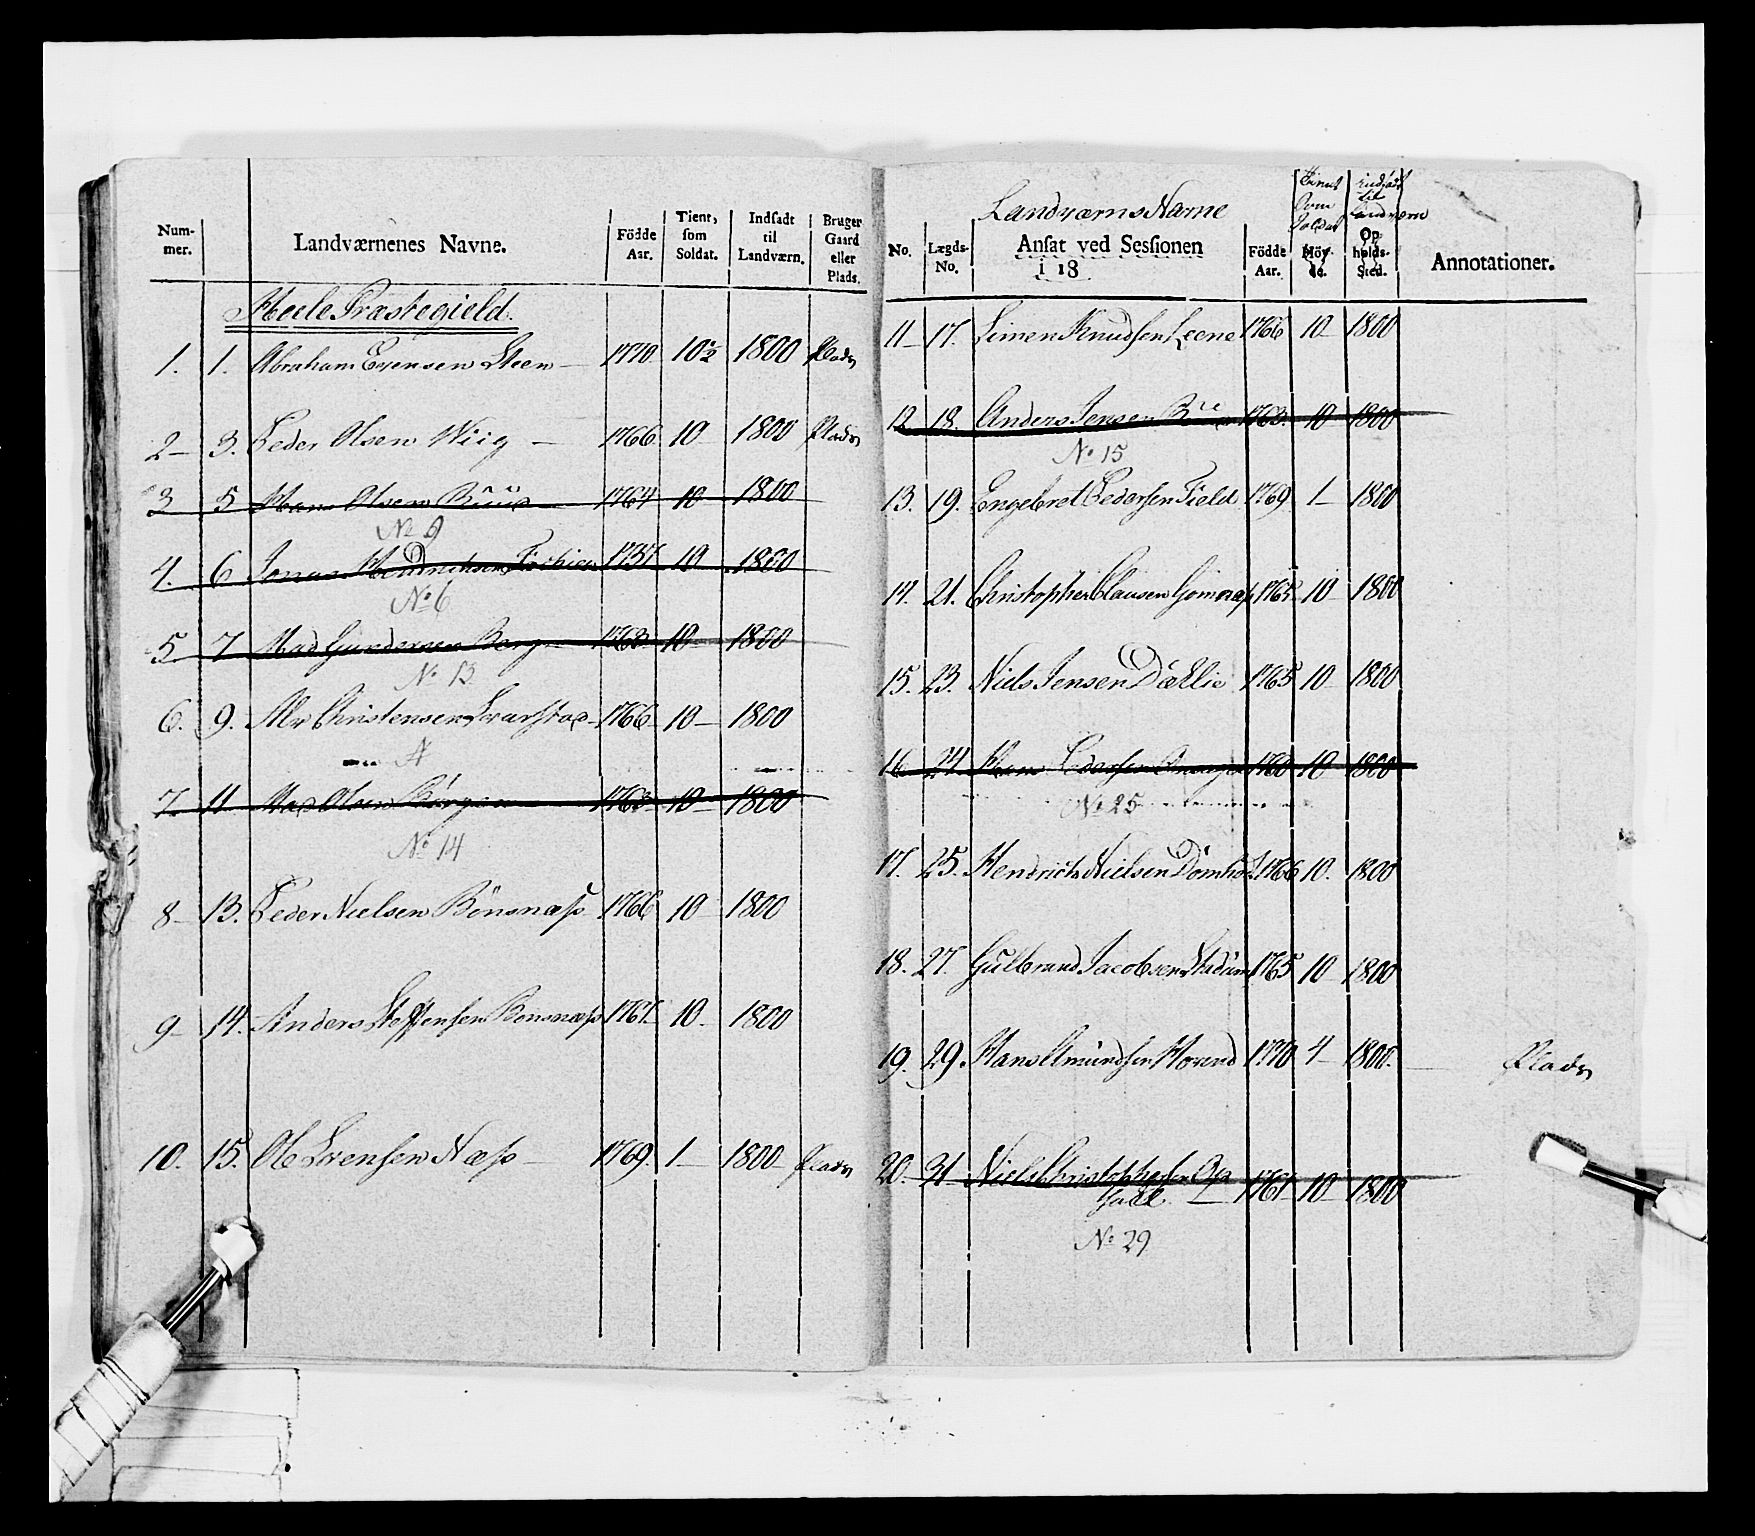 Num-
mer.
Landværnenes Navne.
Födde
Aar.
Tient,
som
Soldat.
Indsadt
til
Landværn.
Bruger
Gaard
eller
Plads.
Hoele Præstegield.
1. 1. Abraham Evensen Steen — 1770. 10½ 1800 Plads
2 – 3. Peder Olsen Wiig — 1766. 10 1800 Plads
3 5 Hans Olsen Ruud 1764 10 1800
No 9
4. 6 Jonas Hendrichsen 1757 10 1800
No 6
5 7 Mads Gundersen Berg 1763 10 1800
No 13
6. 9. Alv Christensen Svarstad 1766 10 – 1800
A
7. 11 Mads Olsen 1763 10 – 1800
No 14
8 – 13. Peder Nielsen Bönsnæss 1766 10 – 1800
9 – 14. Anders Steffensen Bonsnæss 1767. 10. 1800
10. 15. Ole Svensen Næss – 1769. 1 – 1800 – Plads
Landværns Navne
No.
Lægds-
No.
Ansat ved Sessionen
i 18
Födde
Aar.
Tient
som
Soldat
Höy-
de.
indsadt
til
Landværn
Op
holds-
Sted.
Annotationer.
11 – 17. Simen Knudsen Leene 1766 10 1800
12 18. Anders Jensen 1763. 10 1800
No 15
13. 19. Engebret Pedersen Field 1769 1 – 1800
14. 21. Christopher Clausen Gomnæs 1765 10 1800
15. 23. Niels Jensen Dæhlie 1765 10 1800
16 24 Hans Pedersen 1760 10 1800
No 25
17. 25. Hendrich Nielsen Domholt 1766 10. 1800
18. 27. Gulbrand Jacobsen Stadum 1765 10 1800
19. 29. Hans Amundsen Horend 1770 4 – 1800. Plads
20. 31 Niels Christophersen Op
1767 10 1800
No 29